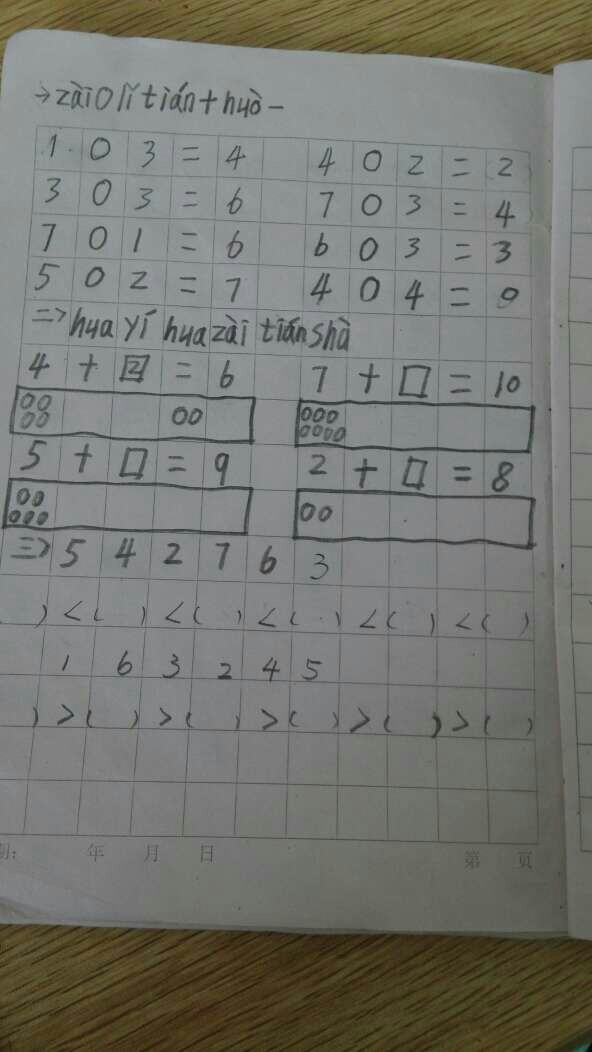 →zài○lǐtián+huò-
1 ○ 3 = 4 4 ○ 2 = 2
3 ○ 3 = 6 7 ○ 3 = 4
7 ○ 1 = 6 6 ○ 3 = 3
5 ○ 2 = 7 4 ○ 4 = 0
=>huayíhuazàitiánshù
4 + 2 = 6 7 + □ = 10
5 + □ = 9 2 + □ = 8
三> 5 4 2 7 6 3
) < ( ) < ( ) < ( ) < ( ) < ( )
1 6 3 2 4 5
) > ( ) > ( ) > ( ) > ( ) > ( )
期: 年 月 日 第 页